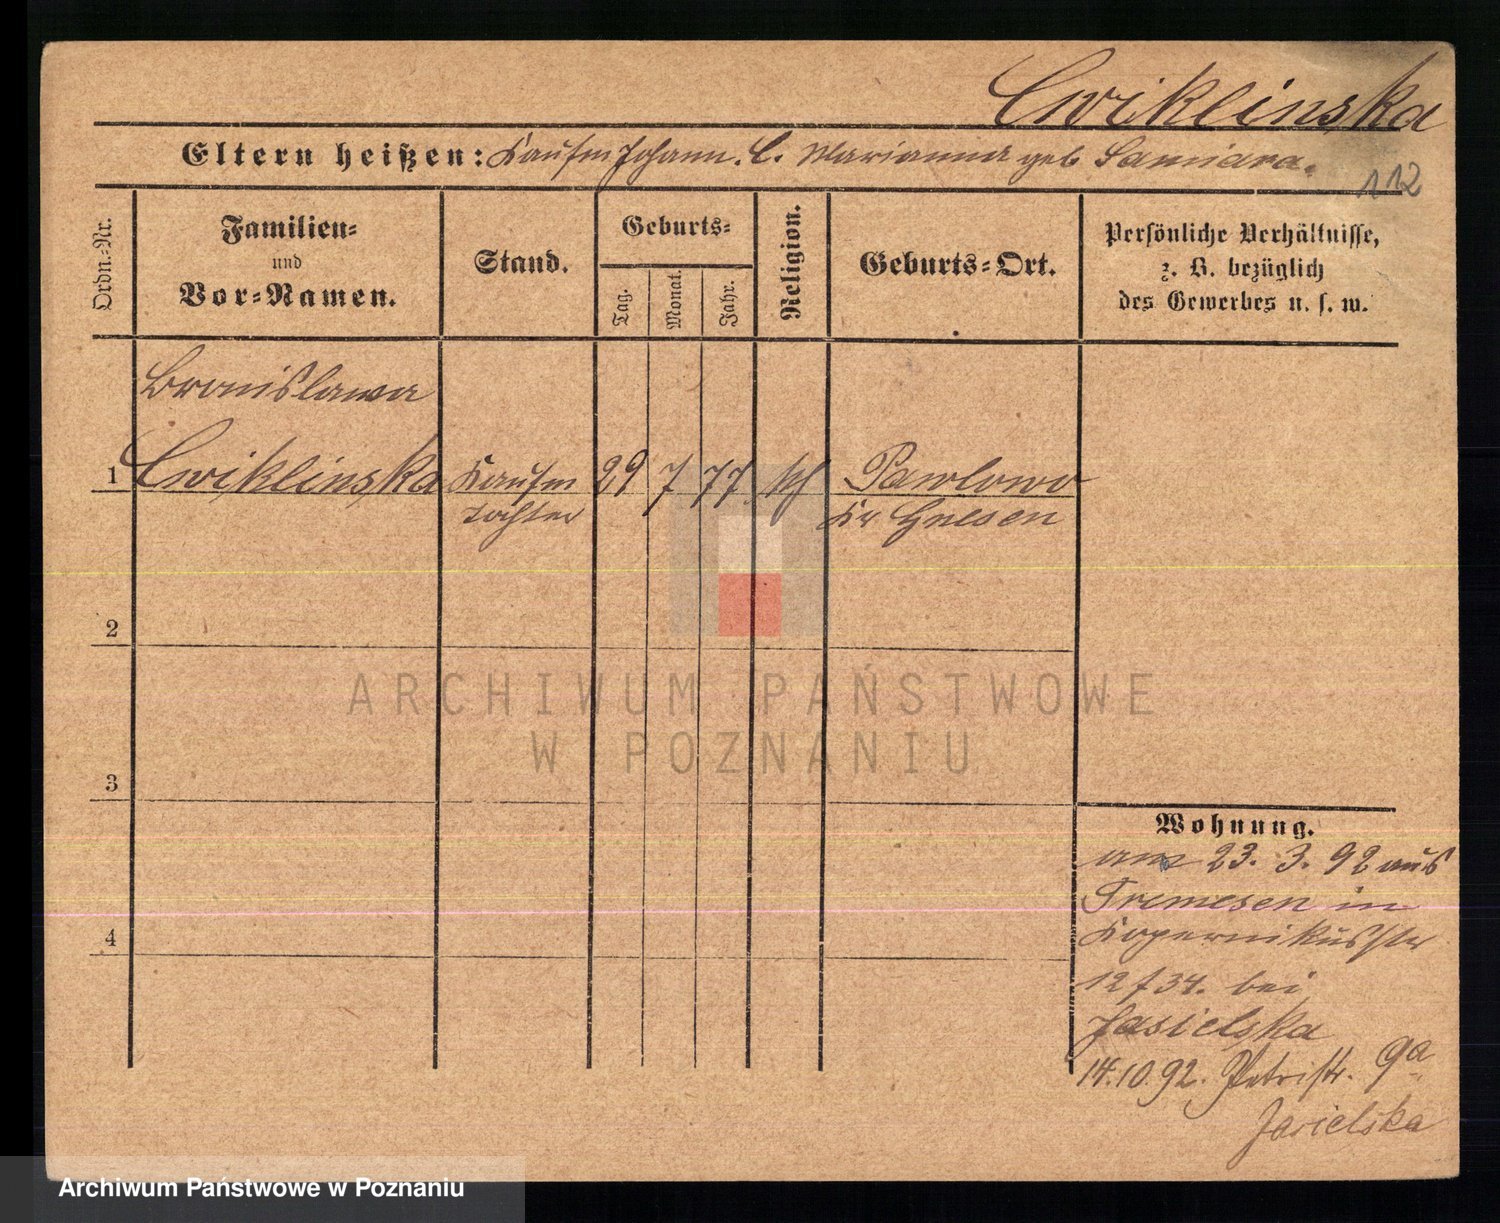 Cwiklinska
Eltern heißen: Kaufm Johann. C. Marianna geb
112
Ordn.-Nr.
Familien-
und
Vor-Namen.
Stand.
Geburts-
Tag.
Monat.
Jahr.
Religion.
Geburts-Ort.
Persönliche Verhältnisse,
z. B. bezüglich
des Gewerbes u. s. w.
Bronislawa
1 Cwiklinska Kaufm 29 7 77 Pawlowo
tochter Kr Gnesen
2
3
4
Wohnung.
am 23. 3. 92 aus
Tremesen in
Kopernikusstr
12 f 34. bei
Jasielska
14.10.92. Petristr. 9a
Jasielska
ARCHIWUM PAŃSTWOWE
W POZNANIU
Archiwum Państwowe w Poznaniu